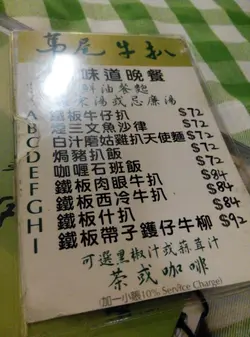 萬尾牛扒
味道晚餐
鮮油餐麵
湯或忌廉湯
A 鐵板牛仔扒 $72
B 煙三文魚沙律 $72
C 白汁磨菇雞扒天使麵 $72
D 焗豬扒飯 $72
E 咖喱石班飯 $72
F 鐵板肉眼牛扒 $84
G 鐵板西冷牛扒 $84
H 鐵板什扒 $84
I 鐵板帶子鑊仔牛柳 $92
可選黑椒汁或蒜茸汁
茶或咖啡
(加一小賬10% Service Charge)